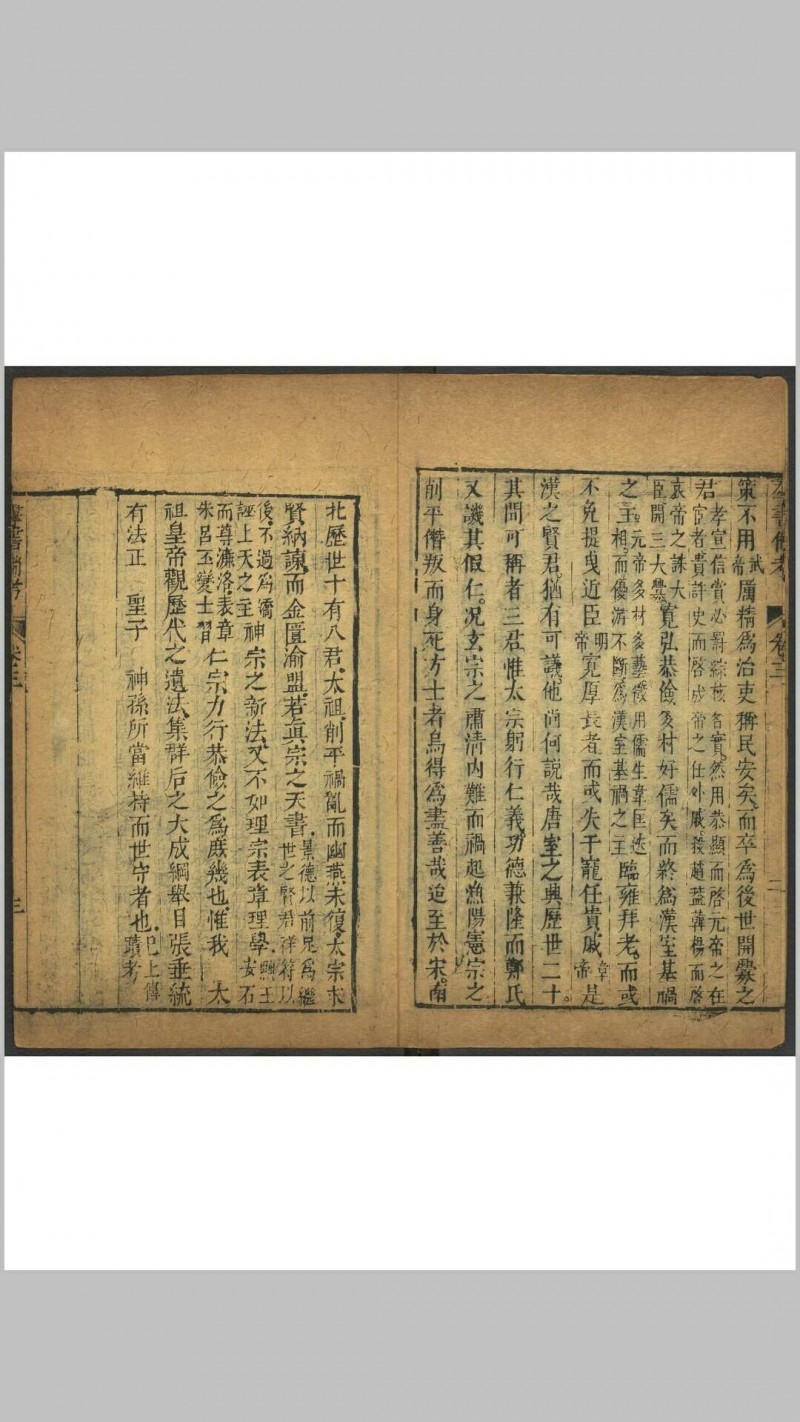 群書備考 卷三 二
策不用武帝厲精爲治吏稱民安矣而卒爲後世開釁之
君孝宣信賞必罰綜核名實然用恭顯而啓元帝之任
宦者貴許史而啓成帝之任外戚殺趙蓋韓楊而啓
哀帝之誅大
臣開三大釁寛弘恭儉多材好儒矣而終爲漢室基禍
之主元帝多材多藝徵用儒生韋匡迭
相而優游不斷爲漢室基禍之主臨雍拜老而或
不免提曳近臣明帝寛厚長者而或失于寵任貴戚章帝是
漢之賢君猶有可議他尚何説哉唐室之興歷世二十
其間可稱者三君惟太宗躬行仁義功德兼隆而鄭氏
又譏其假仁况玄宗之肅清内難而禍起漁陽憲宗之
削平僭叛而身死方士者烏得爲盡善哉迨至於宋南
北歷世十有八君太祖削平禍亂而幽燕未復太宗求
賢納諫而金匱渝盟若眞宗之天書景德以前足爲繼世之賢君祥符以
後不過爲矯
誣上天之主神宗之新法又不如理宗表章理學黜王安石
而尊濂洛表章
朱呂丕變士習仁宗力行恭儉之爲庶幾也惟我 太
祖皇帝觀歷代之遺法集群后之大成綱舉目張垂統
有法正 聖子 神孫所當維持而世守者也已上傳蹟考
群書備考 卷三 三